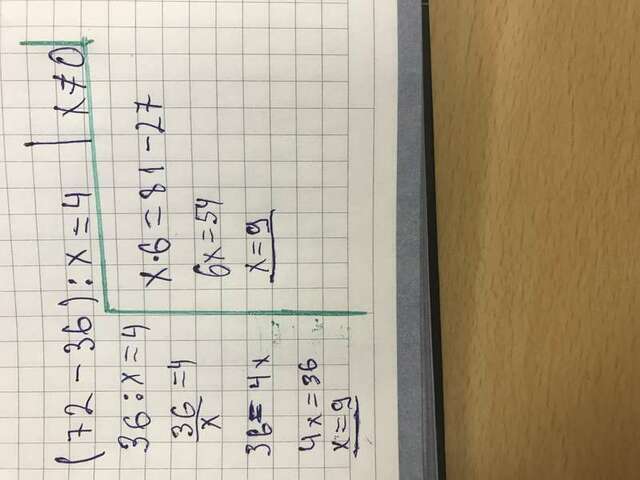 (72 - 36) : x = 4 | x ≠ 0
36 : x = 4
36/x = 4
36 = 4x
4x = 36
x = 9
x · 6 = 81 - 27
6x = 54
x = 9